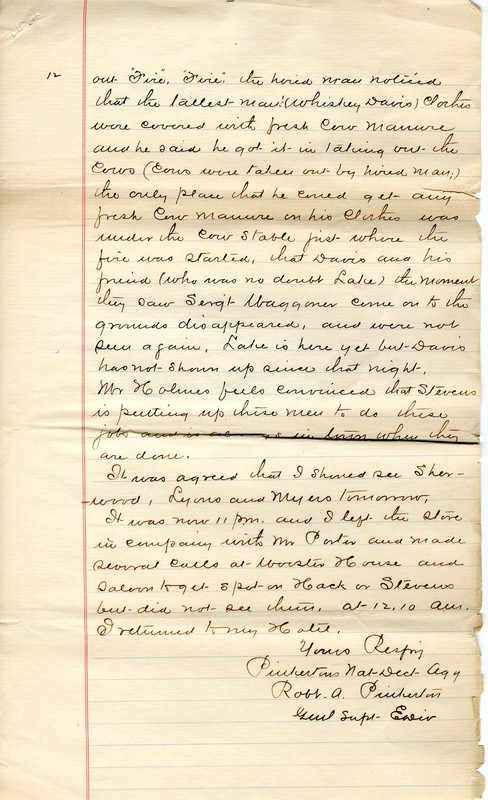 12
out "Fire", "Fire" the hired man noticed
that the tallest man's (Whiskey Davis) Clothes
were covered with fresh Cow Manure
and he said he got it in taking out the
Cows (Cows were taken out by hired man;)
the only place that he could get any
fresh Cow Manure on his Clothes was
under the Cow Stable just where the
fire was started, that Davis and his
friend (who was no doubt Lake) the moment
they saw Sergt Waggoner come on to the
grounds disappeared, and were not
seen again, Lake is here yet but Davis
has not shown up since that night,
Mr Holmes feels convinced that Stevens
is putting up these men to do these
jobs and is in town when they
are done.
It was agreed that I should see Sher-
-wood, Lyons and Myers tomorrow,
It was now 11 pm. and I left the store
in company with Mr Porter and made
several calls at Wooster House and
Saloon to get spot on Hack or Stevens
but did not see them, at 12.10 am.
I returned to my Hotel.
Yours Respy
Pinkertons Nat Dect Agy
Robt. A. Pinkerton
Genl Supt